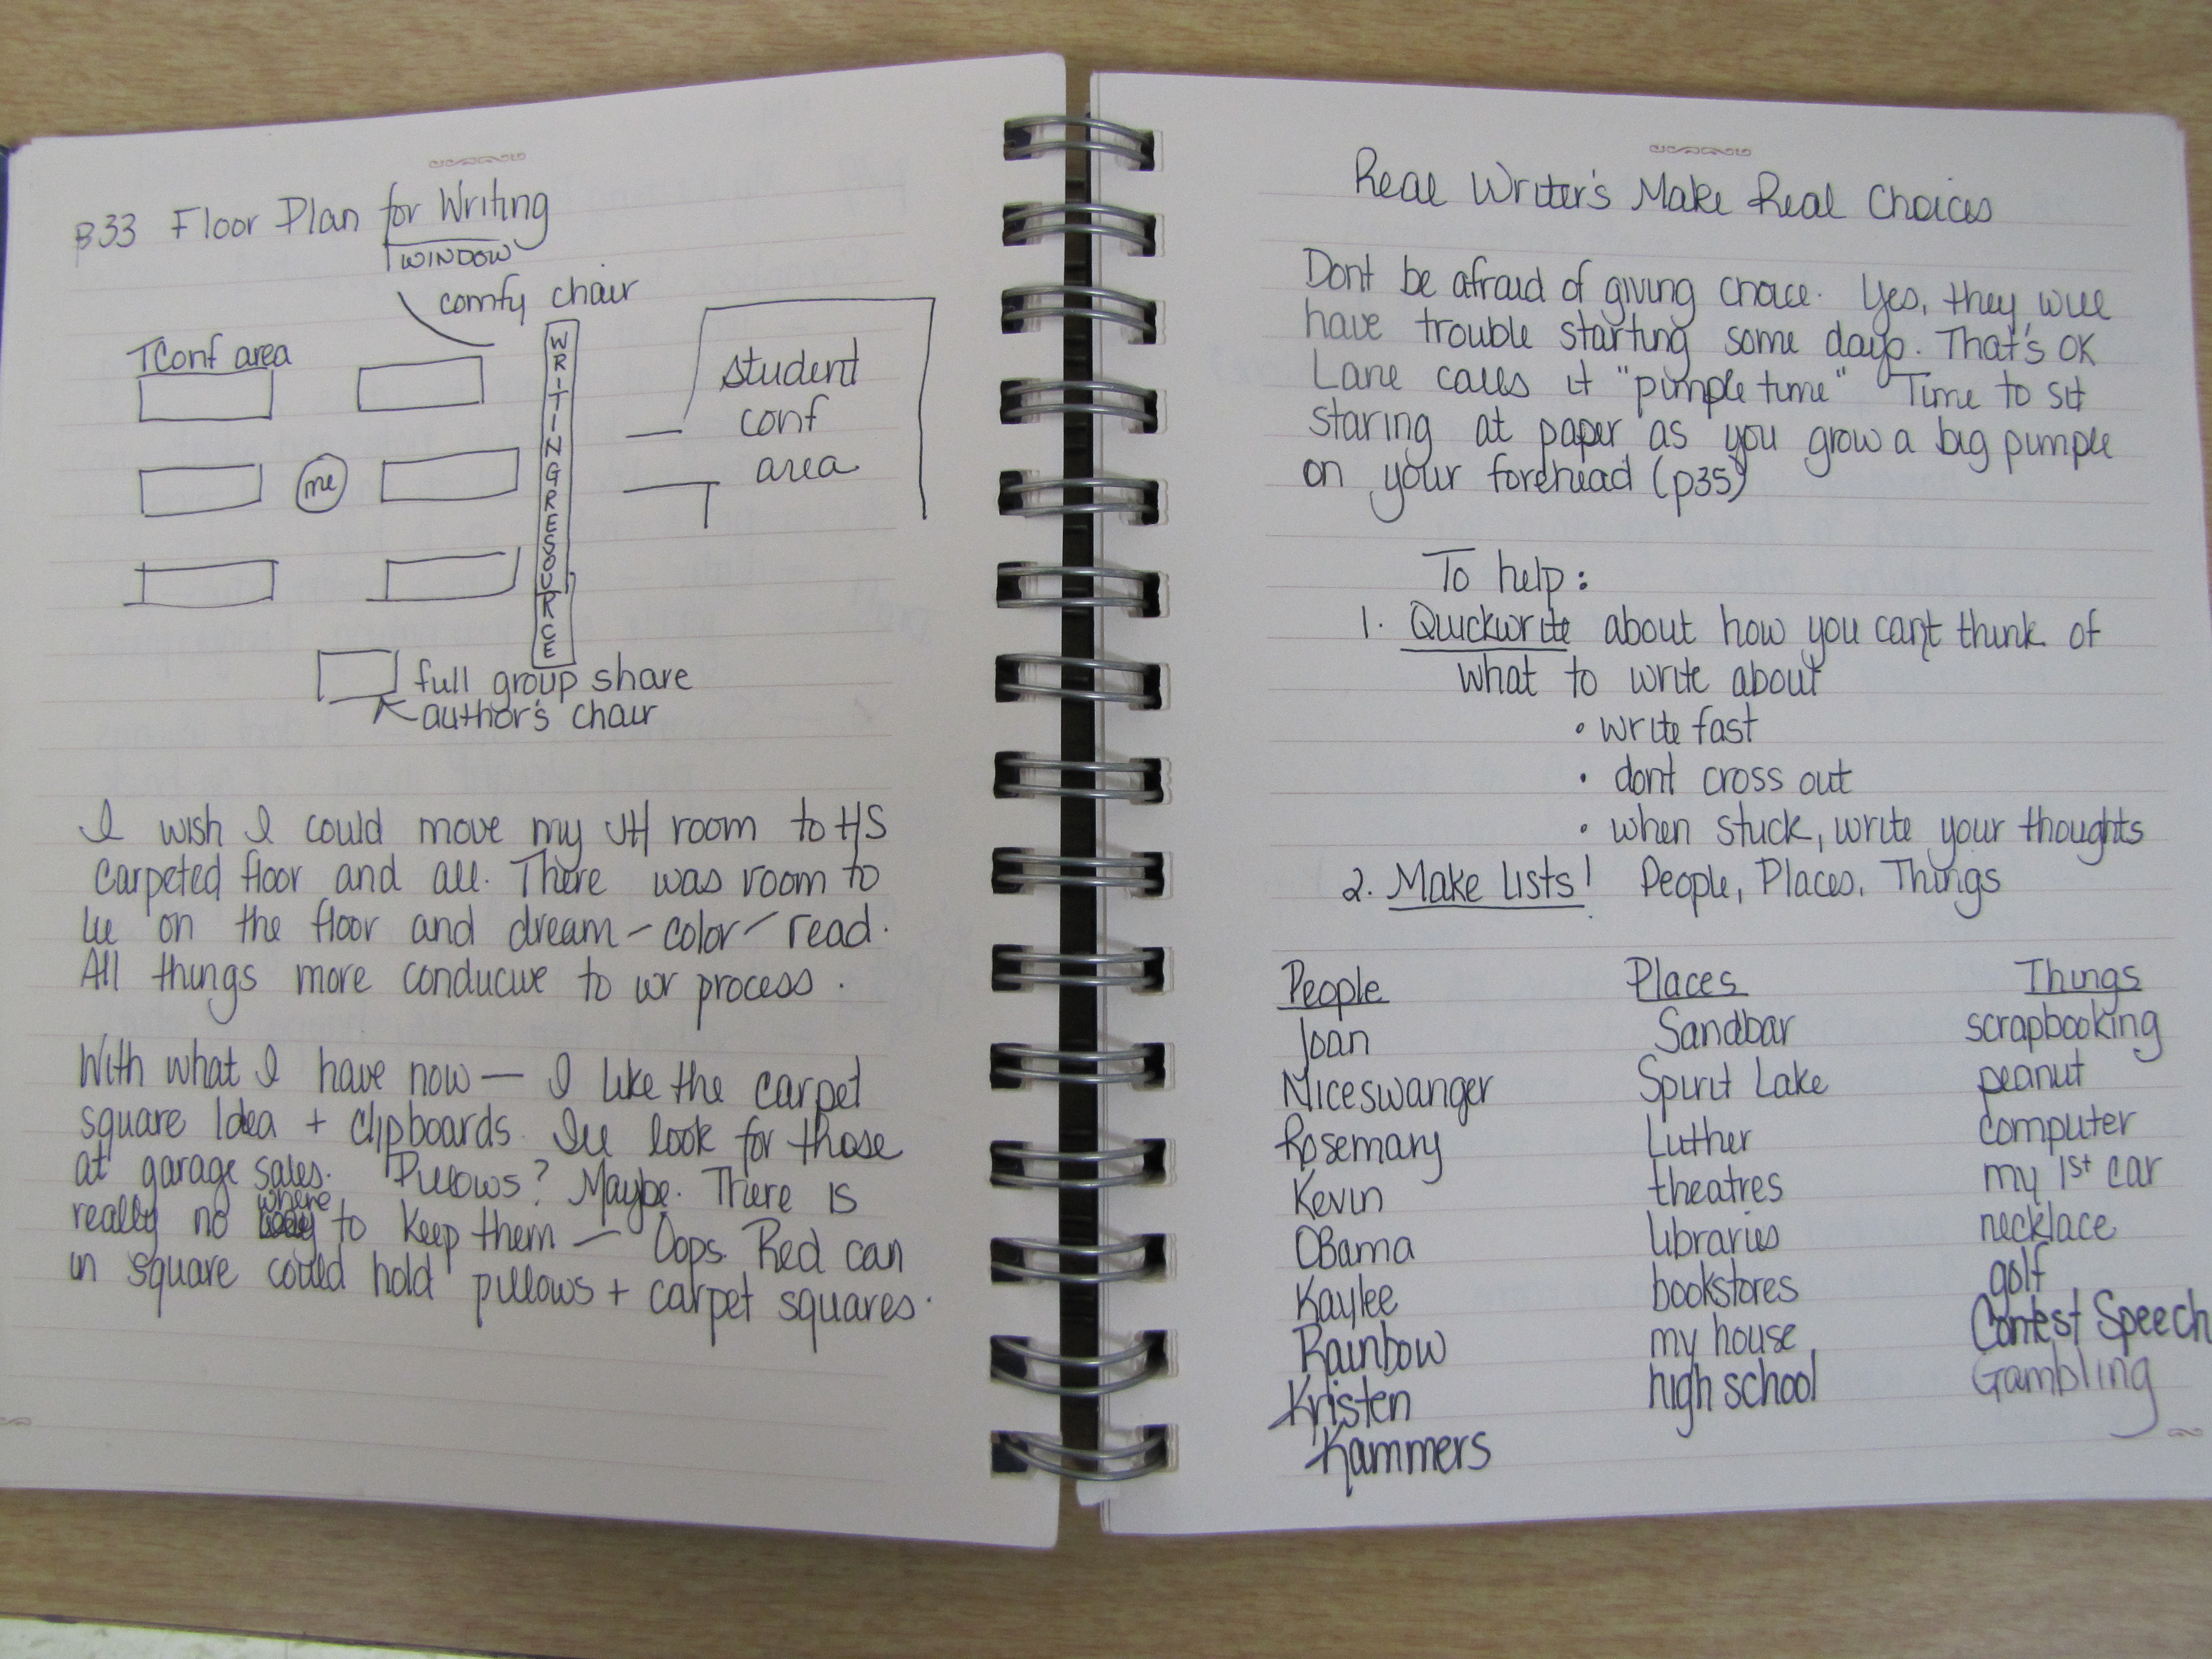 B33 Floor Plan for Writing
WINDOW
comfy chair
TConf area
WRITING RESOURCE
student
conf
area
me
full group share
author's chair
I wish I could move my JH room to HS
carpeted floor and all. There was room to
lie on the floor and dream - color - read.
All things more conducive to wr process.
With what I have now — I like the carpet
square idea + clipboards. I'll look for those
at garage sales. Pillows? Maybe. There is
really no where to keep them — Oops. Red can
in square could hold pillows + carpet squares.
Real Writer's Make Real Choices
Dont be afraid of giving choice. Yes, they will
have trouble starting some days. That's OK
Lane calls it "pimple time" Time to sit
staring at paper as you grow a big pimple
on your forehead (p35)
To help:
1. Quickwrite about how you can't think of
what to write about
• write fast
• dont cross out
• when stuck, write your thoughts
2. Make Lists! People, Places, Things
People Places Things
Joan Sandbar scrapbooking
Niceswanger Spirit Lake peanut
Rosemary Luther computer
Kevin theatres my 1st car
OBama libraries necklace
Kaylee bookstores golf
Rainbow my house Contest Speech
Kristen high school Gambling
Kammers